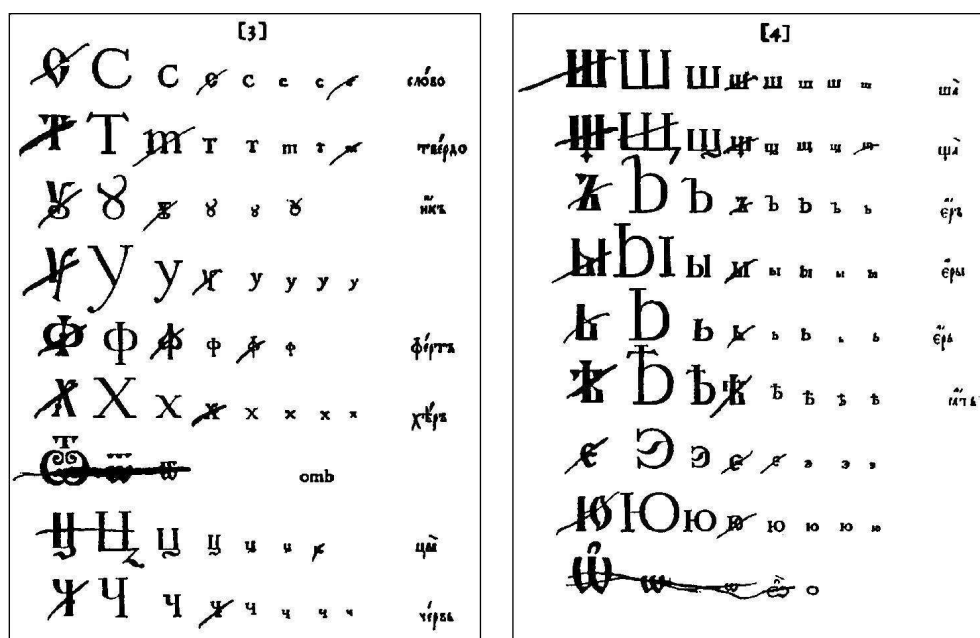 [3]
Ѵ С с с с с с с сло́во
Т Т т т т т т т тве́рдо
Ꙋ Ꙋ ꙋ ꙋ ꙋ ꙋ и҆́къ
У У у у у у у у
Ф Ф ф ф ф ф фе́ртъ
Х Х х х х х х х хѣ́ръ
Ѿ ѿ ѿ отъ
Ц Ц ц ц ц ц ц цы̀
Ч Ч ч ч ч ч ч ч че́рвь
[4]
Ш Ш ш ш ш ш ш ш ша̀
Щ Щ щ щ щ щ щ щ ща̀
Ъ Ъ ъ ъ ъ ъ ъ ъ є҆́ръ
Ы Ы ы ы ы ы ы ы є҆ры̀
Ь Ь ь ь ь ь ь ь є҆́рь
Ѣ Ѣ ѣ ѣ ѣ ѣ ѣ ѣ ꙗ҆́ть
Є Э э є є э э э
Ю Ю ю ю ю ю ю ю
Ѡ ѡ ѡ ѡ ѽ о